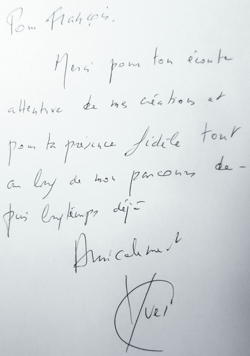 Pour François.
Merci pour ton écoute
attentive de mes créations et
pour ta présence fidèle tout
au long de mon parcours de-
puis longtemps déjà
Amicalement
Yves